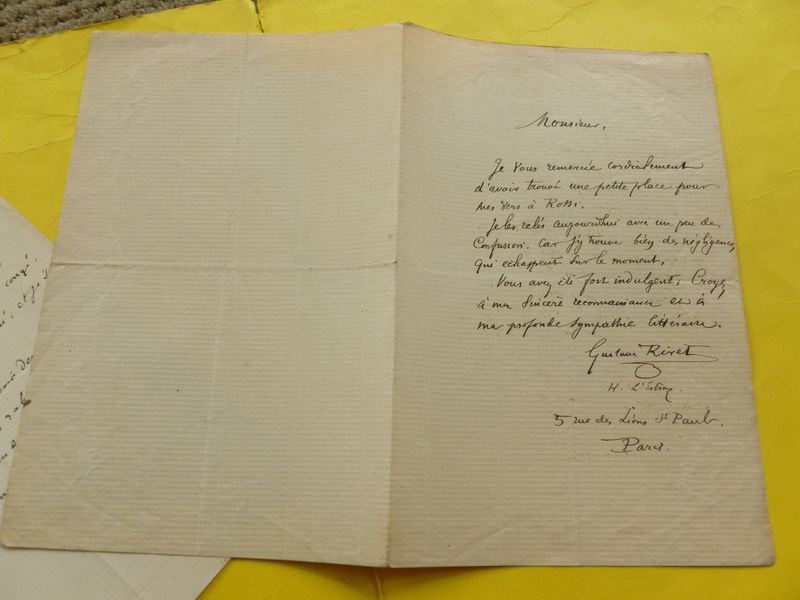 Monsieur,
Je vous remercie cordialement
d'avoir trouvé une petite place pour
mes vers à Rossi.
Je les relis aujourd'hui avec un peu de
Confusion. Car j'y trouve bien des négligences
qui échappent sur le moment.
Vous avez été fort indulgent, Croyez
à ma sincère reconnaissance et à
ma profonde sympathie littéraire.
Gustave Rivet
H. L'Estraz
5 rue des Lions St Paul.
Paris.
congé
; et je